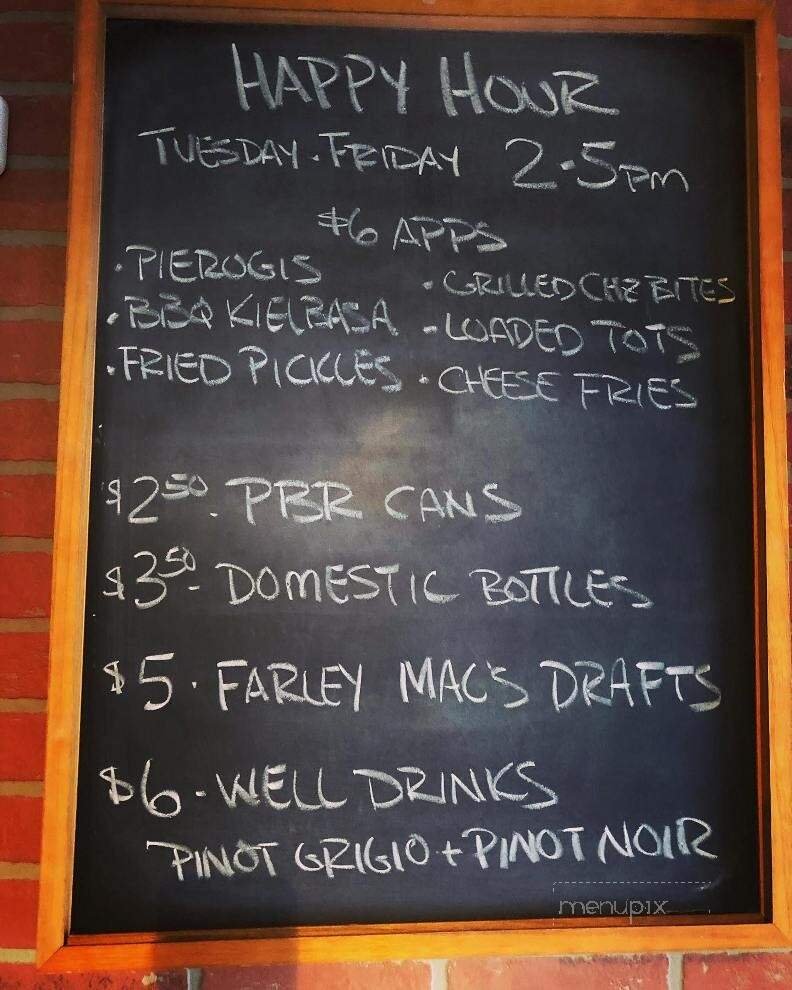 HAPPY HOUR
TUESDAY · FRIDAY 2-5PM
$6 APPS
· PIEROGIS
· BBQ KIELBASA
· FRIED PICKLES
· GRILLED CHZ BITES
- LOADED TOTS
· CHEESE FRIES
$2.50 - PBR CANS
$3.50 - DOMESTIC BOTTLES
$5 · FARLEY MAC'S DRAFTS
$6 - WELL DRINKS
PINOT GRIGIO + PINOT NOIR
menupix